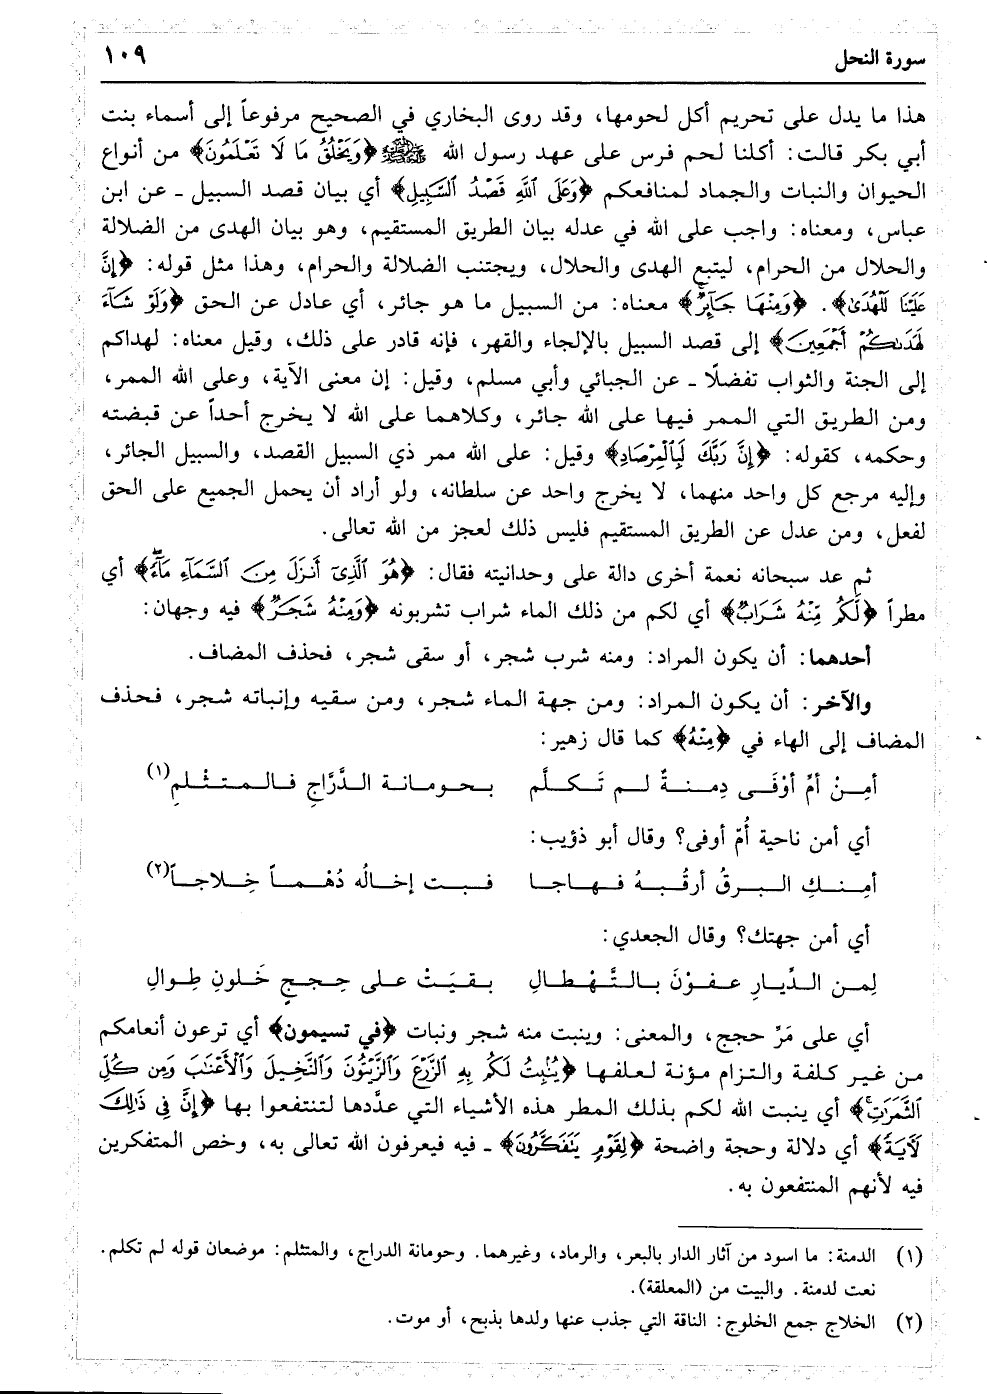 سورة النحل ١٠٩
هذا ما يدل على تحريم أكل لحومها، وقد روى البخاري في الصحيح مرفوعاً إلى أسماء بنت
أبي بكر قالت: أكلنا لحم فرس على عهد رسول الله ﷺ ﴿وَيَخْلُقُ مَا لَا تَعْلَمُونَ﴾ من أنواع
الحيوان والنبات والجماد لمنافعكم ﴿وَعَلَى ٱللَّهِ قَصْدُ ٱلسَّبِيلِ﴾ أي بيان قصد السبيل ـ عن ابن
عباس، ومعناه: واجب على الله في عدله بيان الطريق المستقيم، وهو بيان الهدى من الضلالة
والحلال من الحرام، ليتبع الهدى والحلال، ويجتنب الضلالة والحرام، وهذا مثل قوله: ﴿إِنَّ
عَلَيْنَا لَلْهُدَىٰ﴾. ﴿وَمِنْهَا جَآئِرٌ﴾ معناه: من السبيل ما هو جائر، أي عادل عن الحق ﴿وَلَوْ شَآءَ
لَهَدَىٰكُمْ أَجْمَعِينَ﴾ إلى قصد السبيل بالإلجاء والقهر، فإنه قادر على ذلك، وقيل معناه: لهداكم
إلى الجنة والثواب تفضلًا ـ عن الجبائي وأبي مسلم، وقيل: إن معنى الآية، وعلى الله الممر،
ومن الطريق التي الممر فيها على الله جائر، وكلاهما على الله لا يخرج أحداً عن قبضته
وحكمه، كقوله: ﴿إِنَّ رَبَّكَ لَبِٱلْمِرْصَادِ﴾ وقيل: على الله ممر ذي السبيل القصد، والسبيل الجائر،
وإليه مرجع كل واحد منهما، لا يخرج واحد عن سلطانه، ولو أراد أن يحمل الجميع على الحق
لفعل، ومن عدل عن الطريق المستقيم فليس ذلك لعجز من الله تعالى.
ثم عد سبحانه نعمة أخرى دالة على وحدانيته فقال: ﴿هُوَ ٱلَّذِىٓ أَنزَلَ مِنَ ٱلسَّمَآءِ مَآءً﴾ أي
مطراً ﴿لَّكُم مِّنْهُ شَرَابٌ﴾ أي لكم من ذلك الماء شراب تشربونه ﴿وَمِنْهُ شَجَرٌ﴾ فيه وجهان:
أحدهما: أن يكون المراد: ومنه شرب شجر، أو سقى شجر، فحذف المضاف.
والآخر: أن يكون المراد: ومن جهة الماء شجر، ومن سقيه وإنباته شجر، فحذف
المضاف إلى الهاء في ﴿مِنْهُ﴾ كما قال زهير:
أمِنْ أمِّ أوْفَى دِمنةٌ لم تَكلَّم بحومانة الدَّرَّاجِ فالمتثلمِ(١)
أي أمن ناحية أُمّ أوفى؟ وقال أبو ذؤيب:
أمِنكِ البرقُ أرقُبهُ فهاجا فبت إخالُه دُهْماً خِلاجاً(٢)
أي أمن جهتك؟ وقال الجعدي:
لِمن الدِّيارِ عفوْنَ بالتَّهْطالِ بقيَتْ على حِججٍ خَلونِ طِوالِ
أي على مَرِّ حجج، والمعنى: وينبت منه شجر ونبات ﴿في تسيمون﴾ أي ترعون أنعامكم
من غير كلفة والتزام مؤنة لعلفها ﴿يُنۢبِتُ لَكُم بِهِ ٱلزَّرْعَ وَٱلزَّيْتُونَ وَٱلنَّخِيلَ وَٱلْأَعْنَٰبَ وَمِن كُلِّ
ٱلثَّمَرَٰتِ﴾ أي ينبت الله لكم بذلك المطر هذه الأشياء التي عدَّدها لتنتفعوا بها ﴿إِنَّ فِى ذَٰلِكَ
لَأٓيَةً﴾ أي دلالة وحجة واضحة ﴿لِقَوْمٍ يَتَفَكَّرُونَ﴾ ـ فيه فيعرفون الله تعالى به، وخص المتفكرين
فيه لأنهم المنتفعون به.
(١) الدمنة: ما اسود من آثار الدار بالبعر، والرماد، وغيرهما. وحومانة الدراج، والمتثلم: موضعان قوله لم تكلم.
نعت لدمنة. والبيت من (المعلقة).
(٢) الخلاج جمع الخلوج: الناقة التي جذب عنها ولدها بذبح، أو موت.